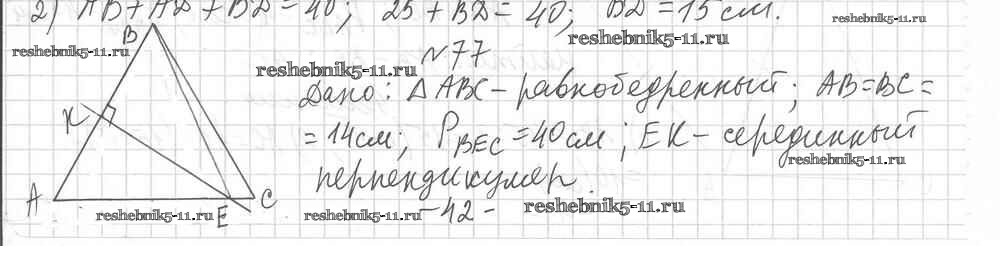 2) AB + AD + BD = 40; 25 + BD = 40; BD = 15 см.
reshebnik5-11.ru
reshebnik5-11.ru
reshebnik5-11.ru
B
№77
reshebnik5-11.ru
Дано: ΔABC – равнобедренный; AB=BC=
K
= 14 см; P_BEC = 40 см; EK – серединный
reshebnik5-11.ru
перпендикуляр.
A
C
E
reshebnik5-11.ru
reshebnik5-11.ru
- 42 -
reshebnik5-11.ru